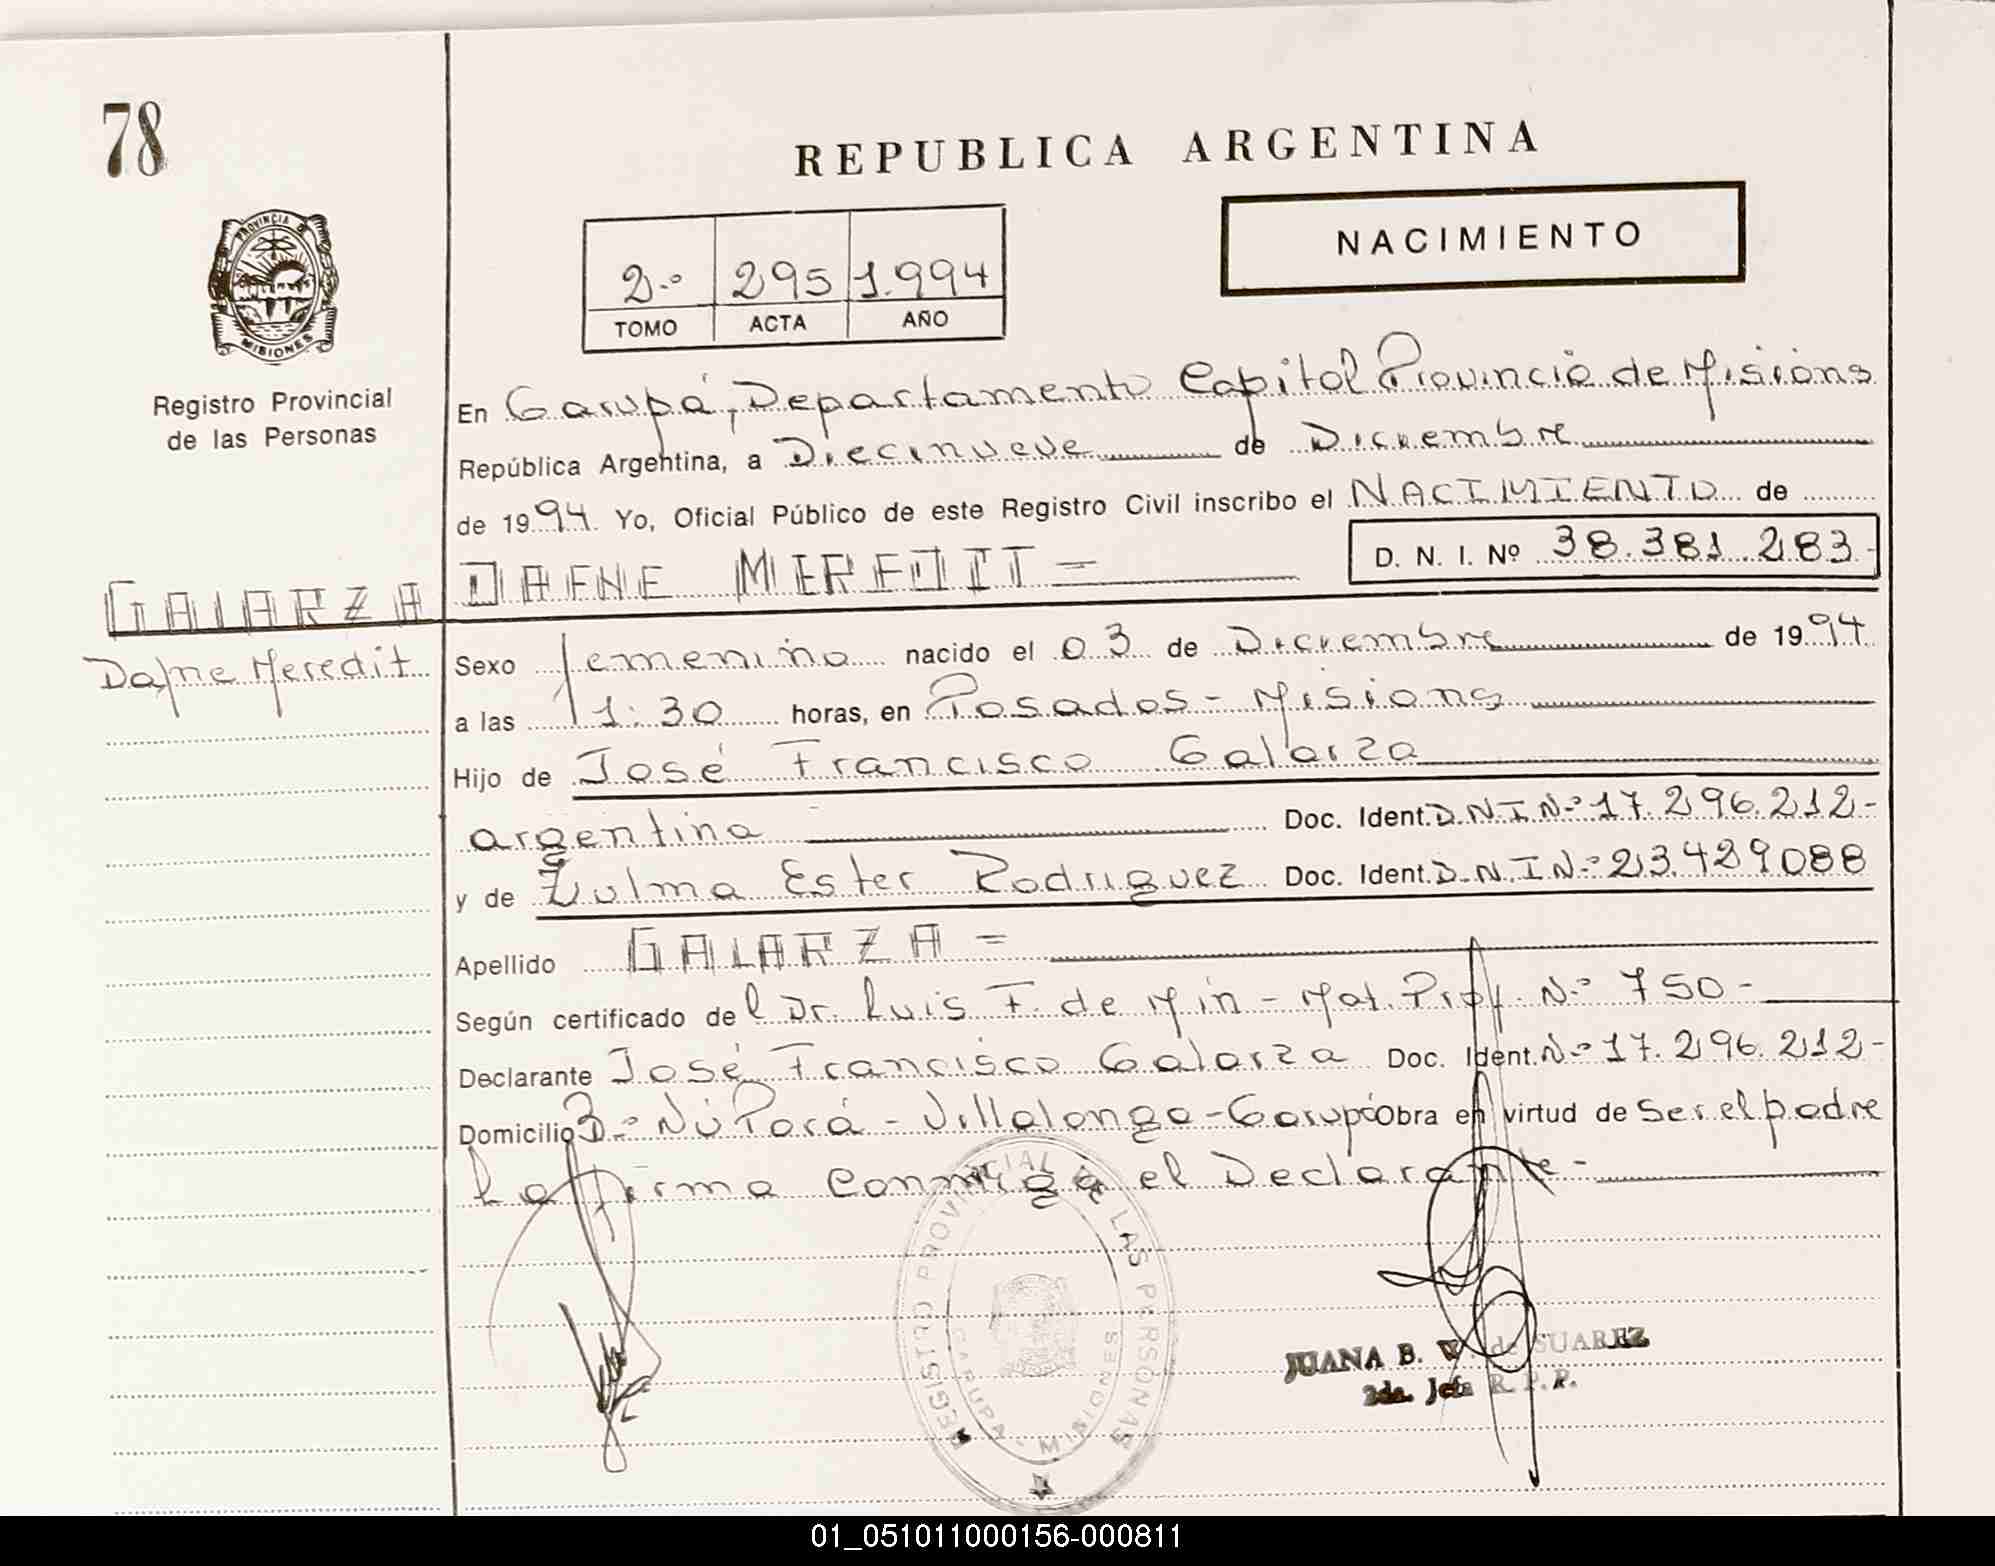 78
REPUBLICA ARGENTINA
NACIMIENTO
2.º 295 1.994
TOMO ACTA AÑO
PROVINCIA DE
MISIONES
Registro Provincial
de las Personas
En Garupá, Departamento Capital Provincia de Misiones
República Argentina, a Diecinueve de Diciembre
de 1994 Yo, Oficial Público de este Registro Civil inscribo el NACIMIENTO de
DAFNE MEREDIT = D. N. I. Nº 38.381.283-
GALARZA
Dafne Meredit
Sexo femenino nacido el 03 de Diciembre de 1994
a las 11:30 horas, en Posadas - Misiones
Hijo de José Francisco Galarza
argentina Doc. Ident. D.N.I N.º 17.296.212-
y de Zulma Ester Rodriguez Doc. Ident. D.N.I N.º 23.429088
Apellido GALARZA =
Según certificado del Dr. Luis F. de Min - Mat. Prof. N.º 750-
Declarante José Francisco Galarza Doc. Ident. N.º 17.296.212-
Domicilio B.º Ñú Porá - Villalonga - Garupá Obra en virtud de ser el padre
La firma conmigo el Declarante-
REGISTRO PROVINCIAL DE LAS PERSONAS
GARUPA - MISIONES
JUANA B. V. de SUAREZ
2da. Jefa R. P. P.
01_051011000156-000811